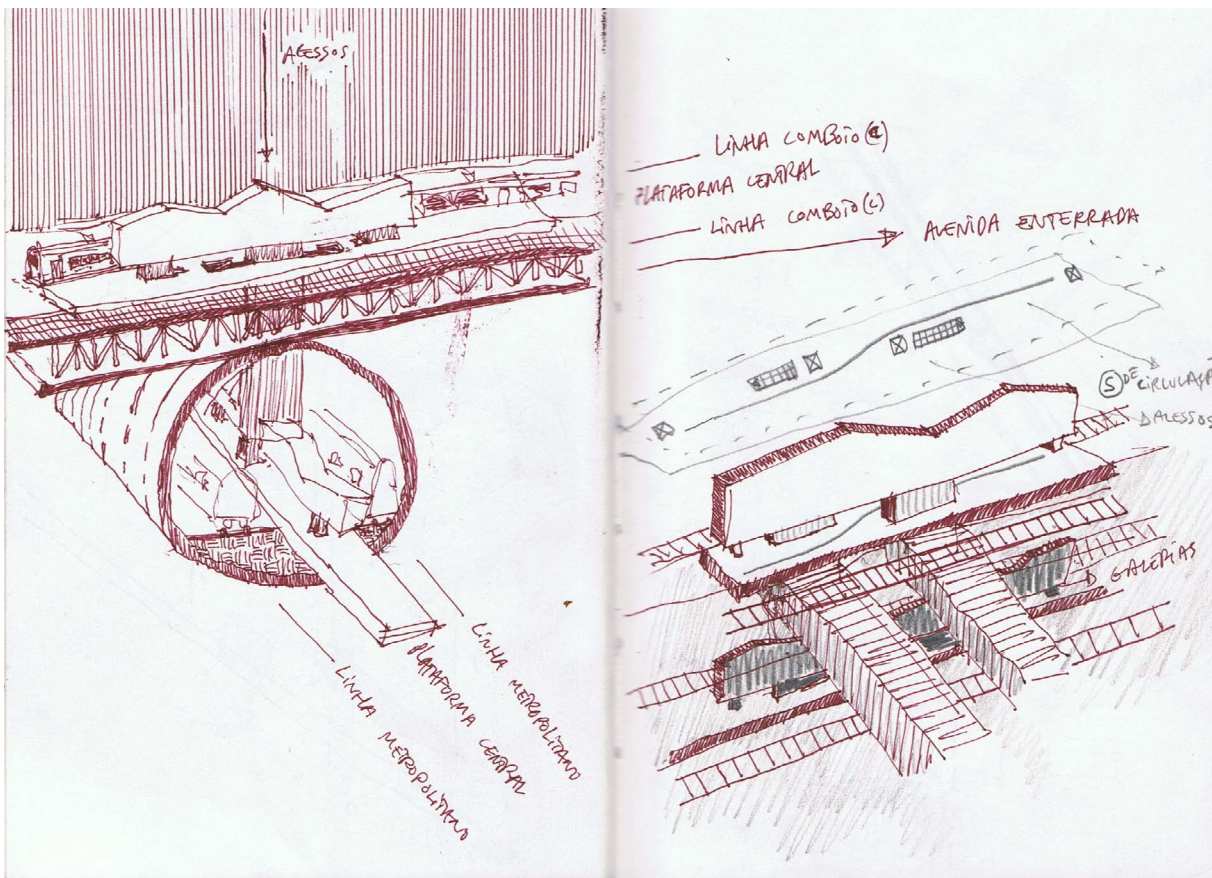 ACESSOS
LINHA METROPOLITANO
PLATAFORMA CENTRAL
LINHA METROPOLITANO
LINHA COMBOIO (C)
PLATAFORMA CENTRAL
LINHA COMBOIO (C)
AVENIDA ENTERRADA
S DE
CIRCULAÇÃ
ACESSOS
GALERIAS